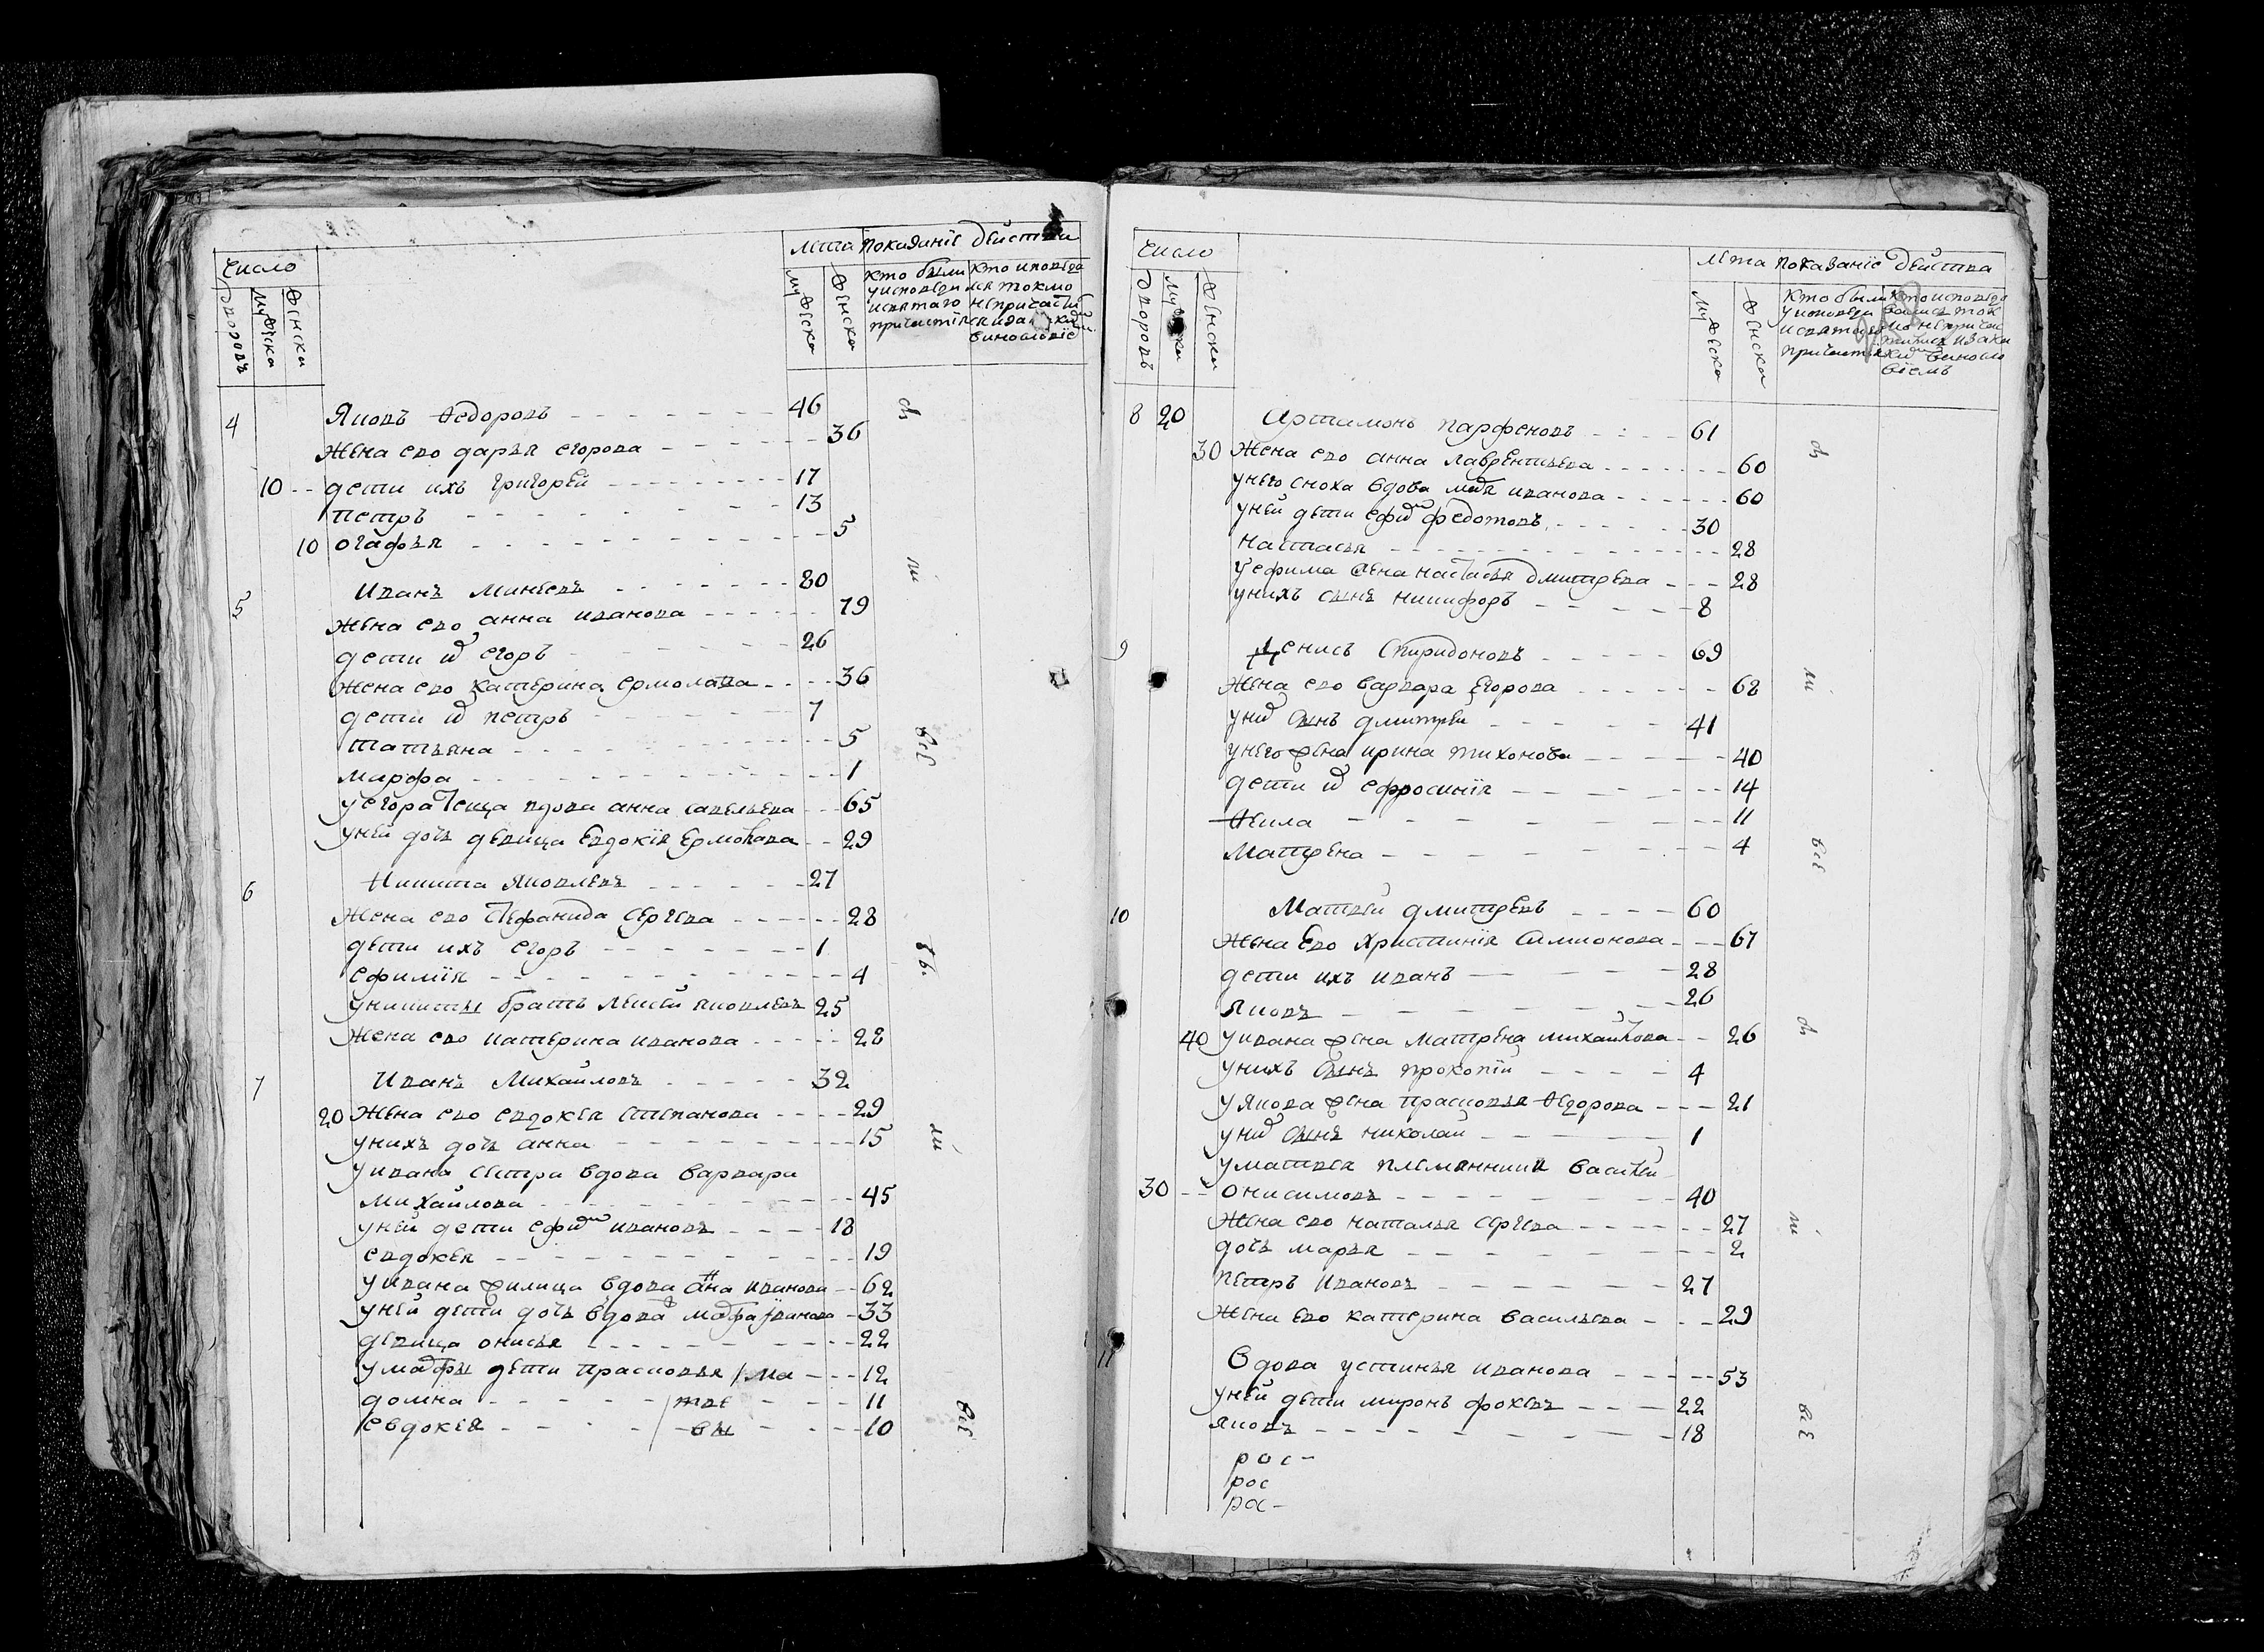 Число
Дворовъ
Мужеска
Женска
Лета
Показаніе действа
Мужеска
Женска
Кто были
у исповеди
и святаго
причастія
Кто исповеда
лся токмо
не причасти
виносло­віе
4 Яковъ Федоровъ 46
Жена ево дарья егорова 36
10 дети ихъ григорей 17
петръ 13
10 огафья 5
5 Иванъ Минеевъ 80
Жена ево анна иванова 79
дети их егоръ 26
Жена ево катерина ермолаева 36
дети их петръ 7
татьяна 5
марфа 1
у егора теща вдова анна савельева 65
у ней дочь девица Евдокія Ермолаева 29
6 Никита яковлевъ 27
Жена ево стефанида сергеева 28
дети ихъ егоръ 1
ефимія 4
у никиты братъ алексей яковлевъ 25
Жена ево катерина иванова 28
7 Иванъ Михайловъ 32
20 Жена ево евдокея степанова 29
у нихъ дочь анна 15
у ивана сестра вдова варвара
михайлова 45
у ней дети ефимъ ивановъ 18
евдокея 19
у ивана жилица вдова анна иванова 62
у ней дети дочь вдова марфа иванова 33
девица онисья 22
у марфы дети прасковья / Ма 12
домна / тве 11
евдокея / евы 10
Число
Дворовъ
Мужеска
Женска
Лета
Показаніе действа
Мужеска
Женска
Кто были
у исповеди
и святаго
причастія
Кто исповедо
вались ток
мо не причас
тились и зака
кимъ виносло
віемъ
8 20 Артамонъ парфеновъ 61
30 Жена ево анна лаврентьева 60
у него сноха вдова марья иванова 60
у ней дети ефимъ федотовъ 30
настасья 28
у ефима жена настасья дмитреева 28
у нихъ сынъ никифоръ 8
9 Денисъ Спиридоновъ 69
Жена ево варвара Егорова 68
у них сынъ дмитрей 41
у него жена ирина тихонова 40
дети их ефросинія 14
Фекла 11
Матрена 4
10 Матвей дмитреевъ 60
Жена Ево христинія симионова 67
дети ихъ иванъ 28
Яковъ 26
40 у ивана жена матрена михайлова 26
у нихъ сынъ прокопій 4
у якова жена прасковья федорова 21
у них сынъ николай 1
у матвея племянникъ василей
30 онисимовъ 40
Жена ево наталья сергеева 27
дочь марья 2
петръ ивановъ 27
Жена ево катерина васильева 29
11 Вдова устинья иванова 53
у ней дети миронъ фокеевъ 22
яковъ 18
рос
рос
рос